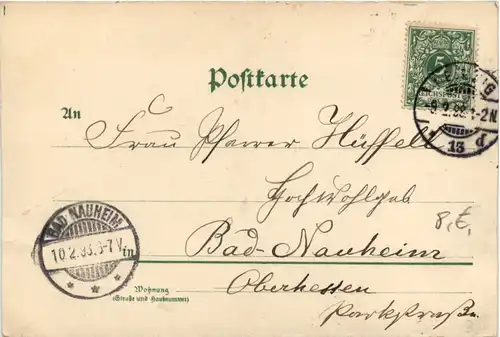 Postkarte
5
REICHSPOST
9.2.98.1-2N
13 d
An
Frau Pfarrer Hüffell
Hochwohlgeb
BAD NAUHEIM
10.2.98.6-7V.
in Bad-Nauheim
8,€,
Oberhessen
Wohnung
(Straße und Hausnummer)
Parkstraße